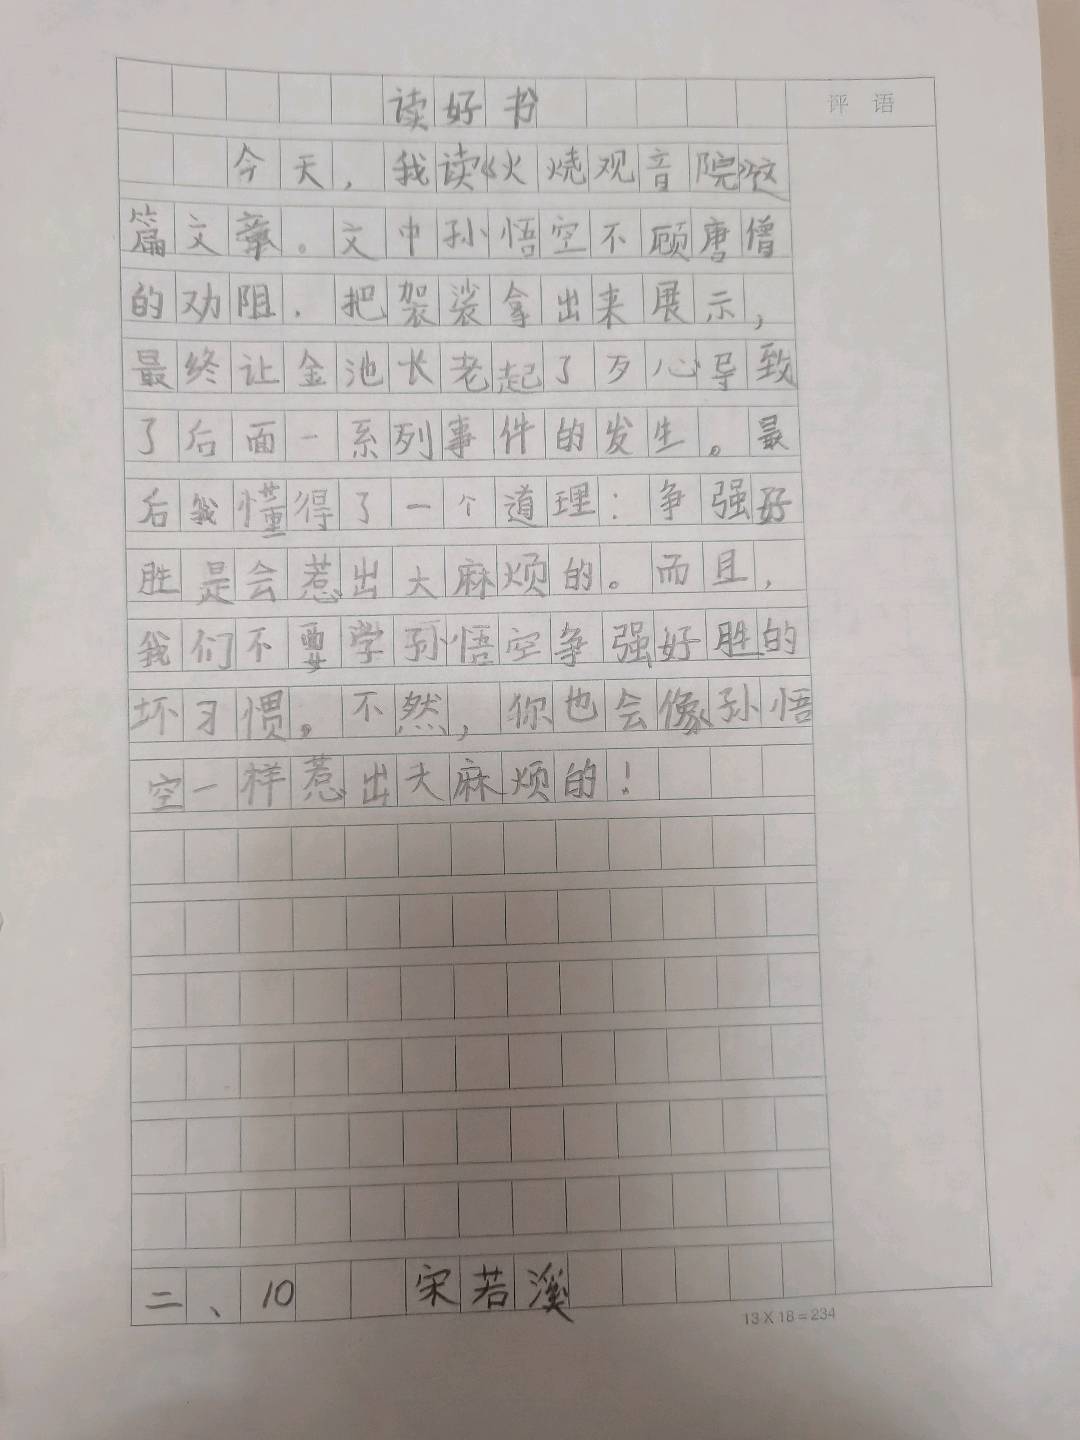 读好书
评语
今天，我读《火烧观音院》这
篇文章。文中孙悟空不顾唐僧
的劝阻．把袈裟拿出来展示，
最终让金池长老起了歹心导致
了后面一系列事件的发生。最
后我懂得了一个道理：争强好
胜是会惹出大麻烦的。而且，
我们不要学孙悟空争强好胜的
坏习惯。不然，你也会像孙悟
空一样惹出大麻烦的！
二、10 宋若溪
13×18=234